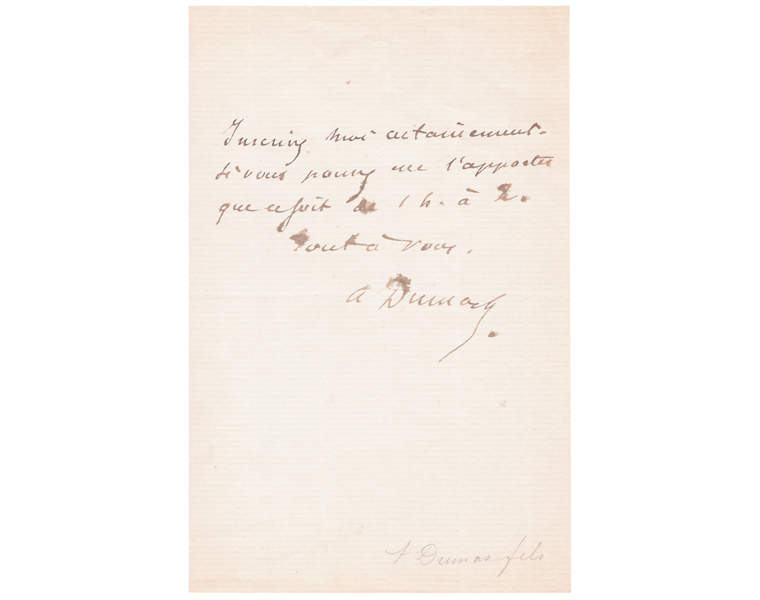 Inscrivez moi certainement.
Si vous pouvez me l'apporter
que ce soit de 1 h. à 2.
Tout à vous.
A Dumas f.
A. Dumas fils